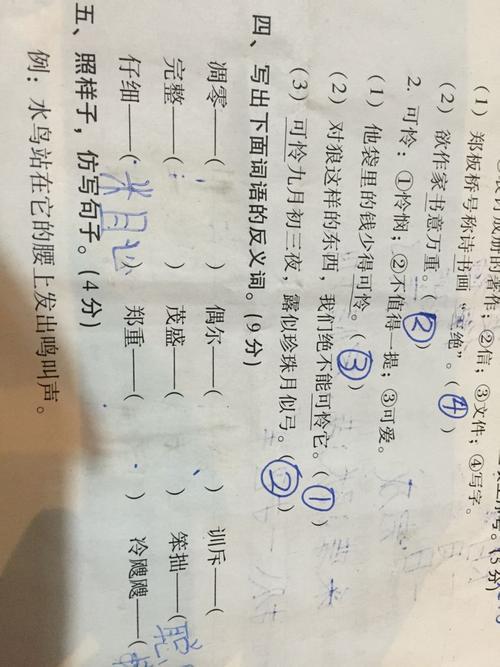 著作；②信；③文件；④写字。
(1) 郑板桥号称诗书画“三绝”。(④)
(2) 欲作家书意万重。(②)
2. 可怜：①怜悯；②不值得一提；③可爱。
(1) 他袋里的钱少得可怜。(③)
(2) 对狼这样的东西，我们绝不能可怜它。(①)
(3) 可怜九月初三夜，露似珍珠月似弓。(②)
四、写出下面词语的反义词。(9分)
凋零——( ) 偶尔——( ) 训斥——(
完整——( ) 茂盛——( ) 笨拙——(聪
仔细——(粗心) 郑重——( ) 冷飕飕——(
五、照样子，仿写句子。(4分)
例：水鸟站在它的腰上发出鸣叫声。